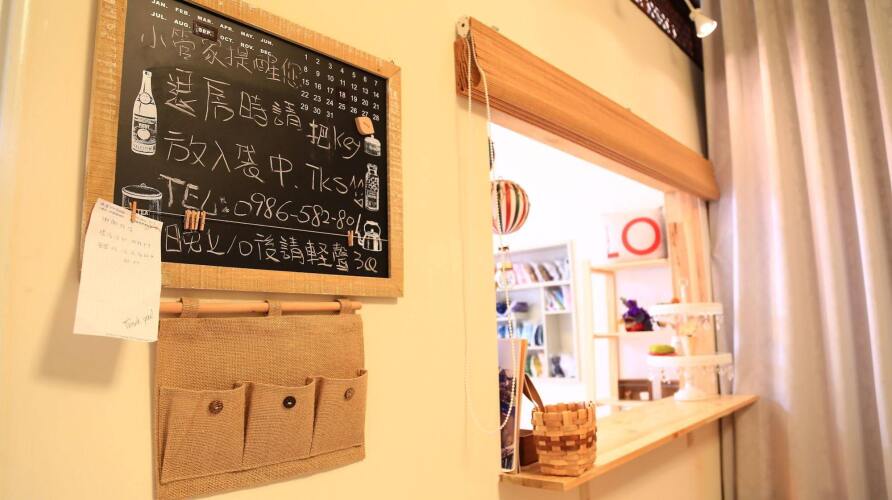 JAN. FEB. MAR. APR. MAY. JUN.
JUL. AUG. SEP. OCT. NOV. DEC.
1 2 3 4 5 6 7
8 9 10 11 12 13 14
15 16 17 18 19 20 21
22 23 24 25 26 27 28
29 30 31
小管家提醒您
退房時請把key
放入袋中. Tks
TEL: 0986-582-801
晚上10後請輕聲 3Q
Thank you!